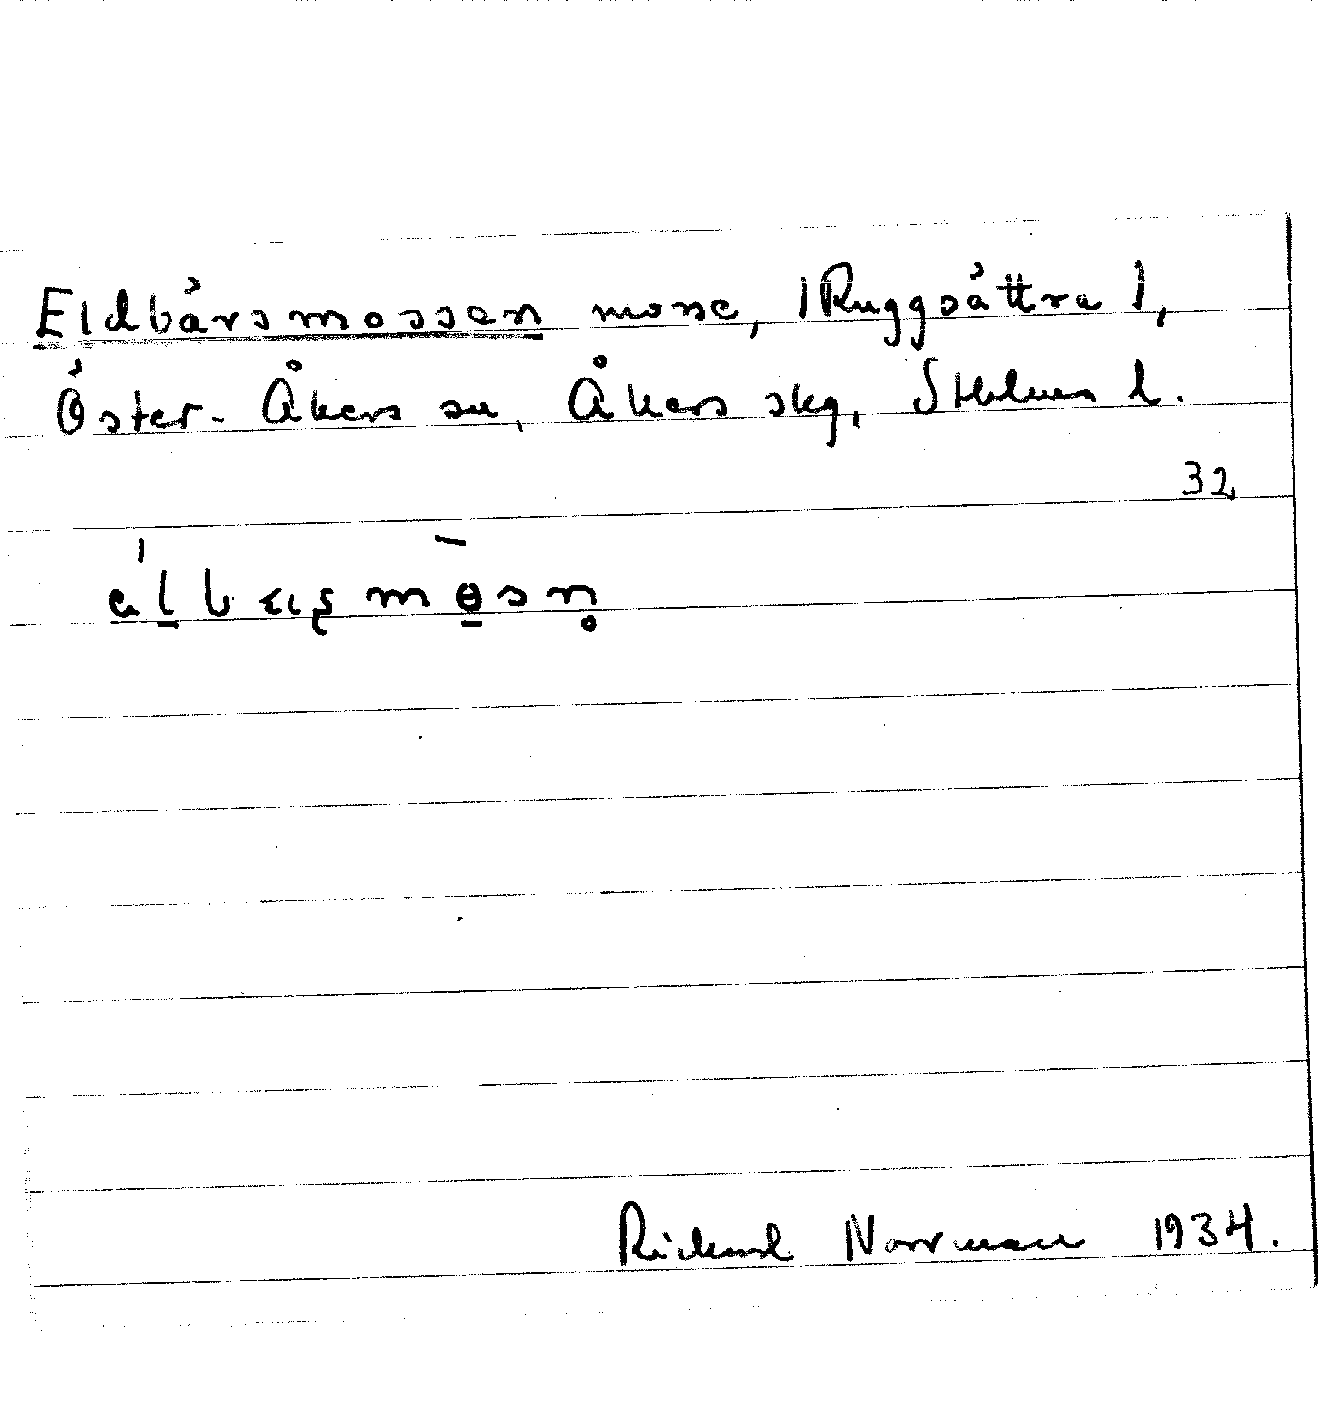 Eldbärsmossen mosse, |Ruggsättra|,
Öster-Åkers sn, Åkers skg, Sthlms l.
32
Rickard Norrman 1934.